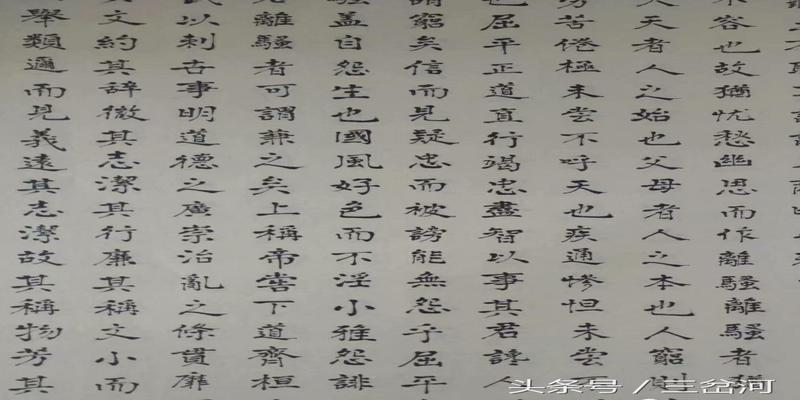 容也故猶忧愁幽思而作離騷離騷者猶
天者人之始也父母者人之本也人窮則
勞苦倦極未嘗不呼天也疾通慘怛未嘗不
也屈平正道直行竭忠盡智以事其君讒人
謂窮矣信而見疑忠而被謗能無怨乎屈平
蓋自怨生也國風好色而不淫小雅怨誹
離騷者可謂兼之矣上稱帝嚳下道齊桓
武以刺古事明道德之廣崇治亂之條貫靡
文約其辭微其志潔其行廉其稱文小而
舉類邇而見義遠其志潔故其稱物芳其
头条号 / 三岔河